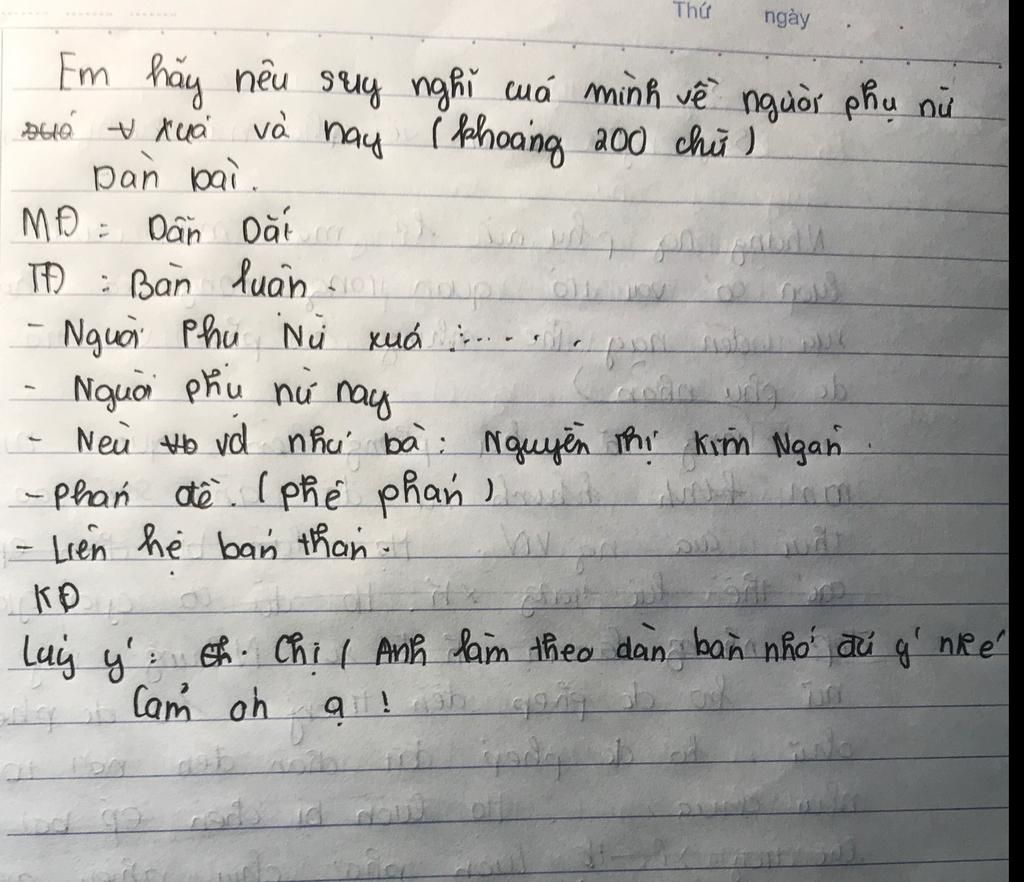 Thứ ngày
Em hãy nêu suy nghĩ cuả mình về người phụ nữ
xưa và nay (khoảng 200 chữ)
Dàn bài.
MĐ: Dẫn Dắt
TĐ: Bàn luận.
- Người Phụ Nữ xưa :.......
- Người phụ nữ nay
- Nêu vd như bà: Nguyễn Thị Kim Ngân.
- phản đề. (phê phán)
- Liên hệ bản thân.
KĐ
Lưu ý: Chị / Anh làm theo dàn bàn nhớ đủ ý nhé
Cảm ơh ạ!